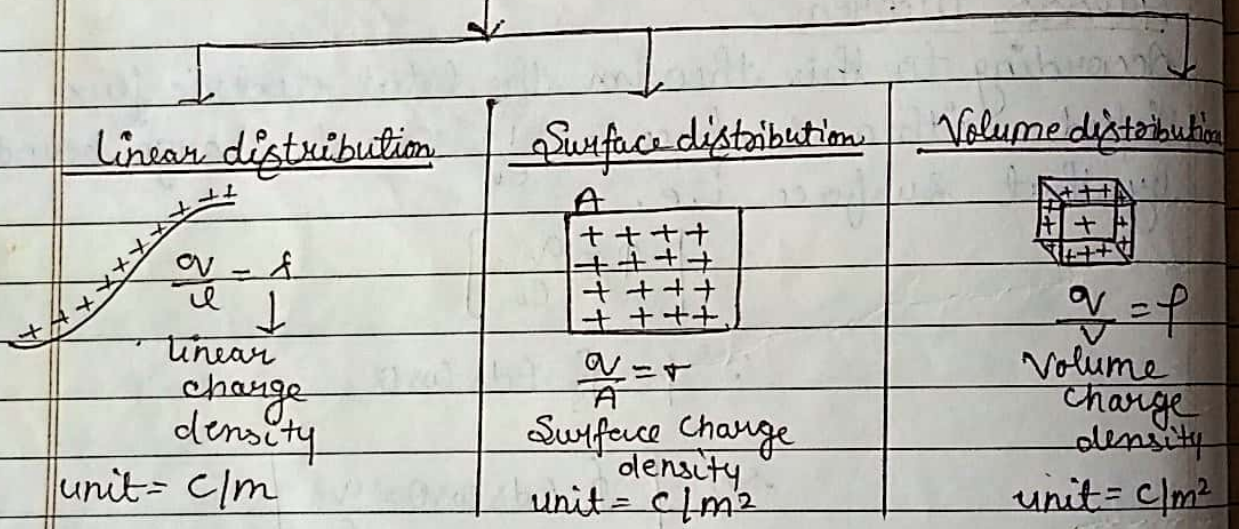 Linear distribution
++
+ + + + + + + + +
q/l = λ
↓
linear
charge
density
unit = C/m
Surface distribution
A
+ + + +
+ + + +
+ + + +
+ + + +
q/A = σ
Surface charge
density
unit = C/m²
Volume distribution
+++
+ + +
+++
q/V = ρ
Volume
charge
density
unit = C/m²